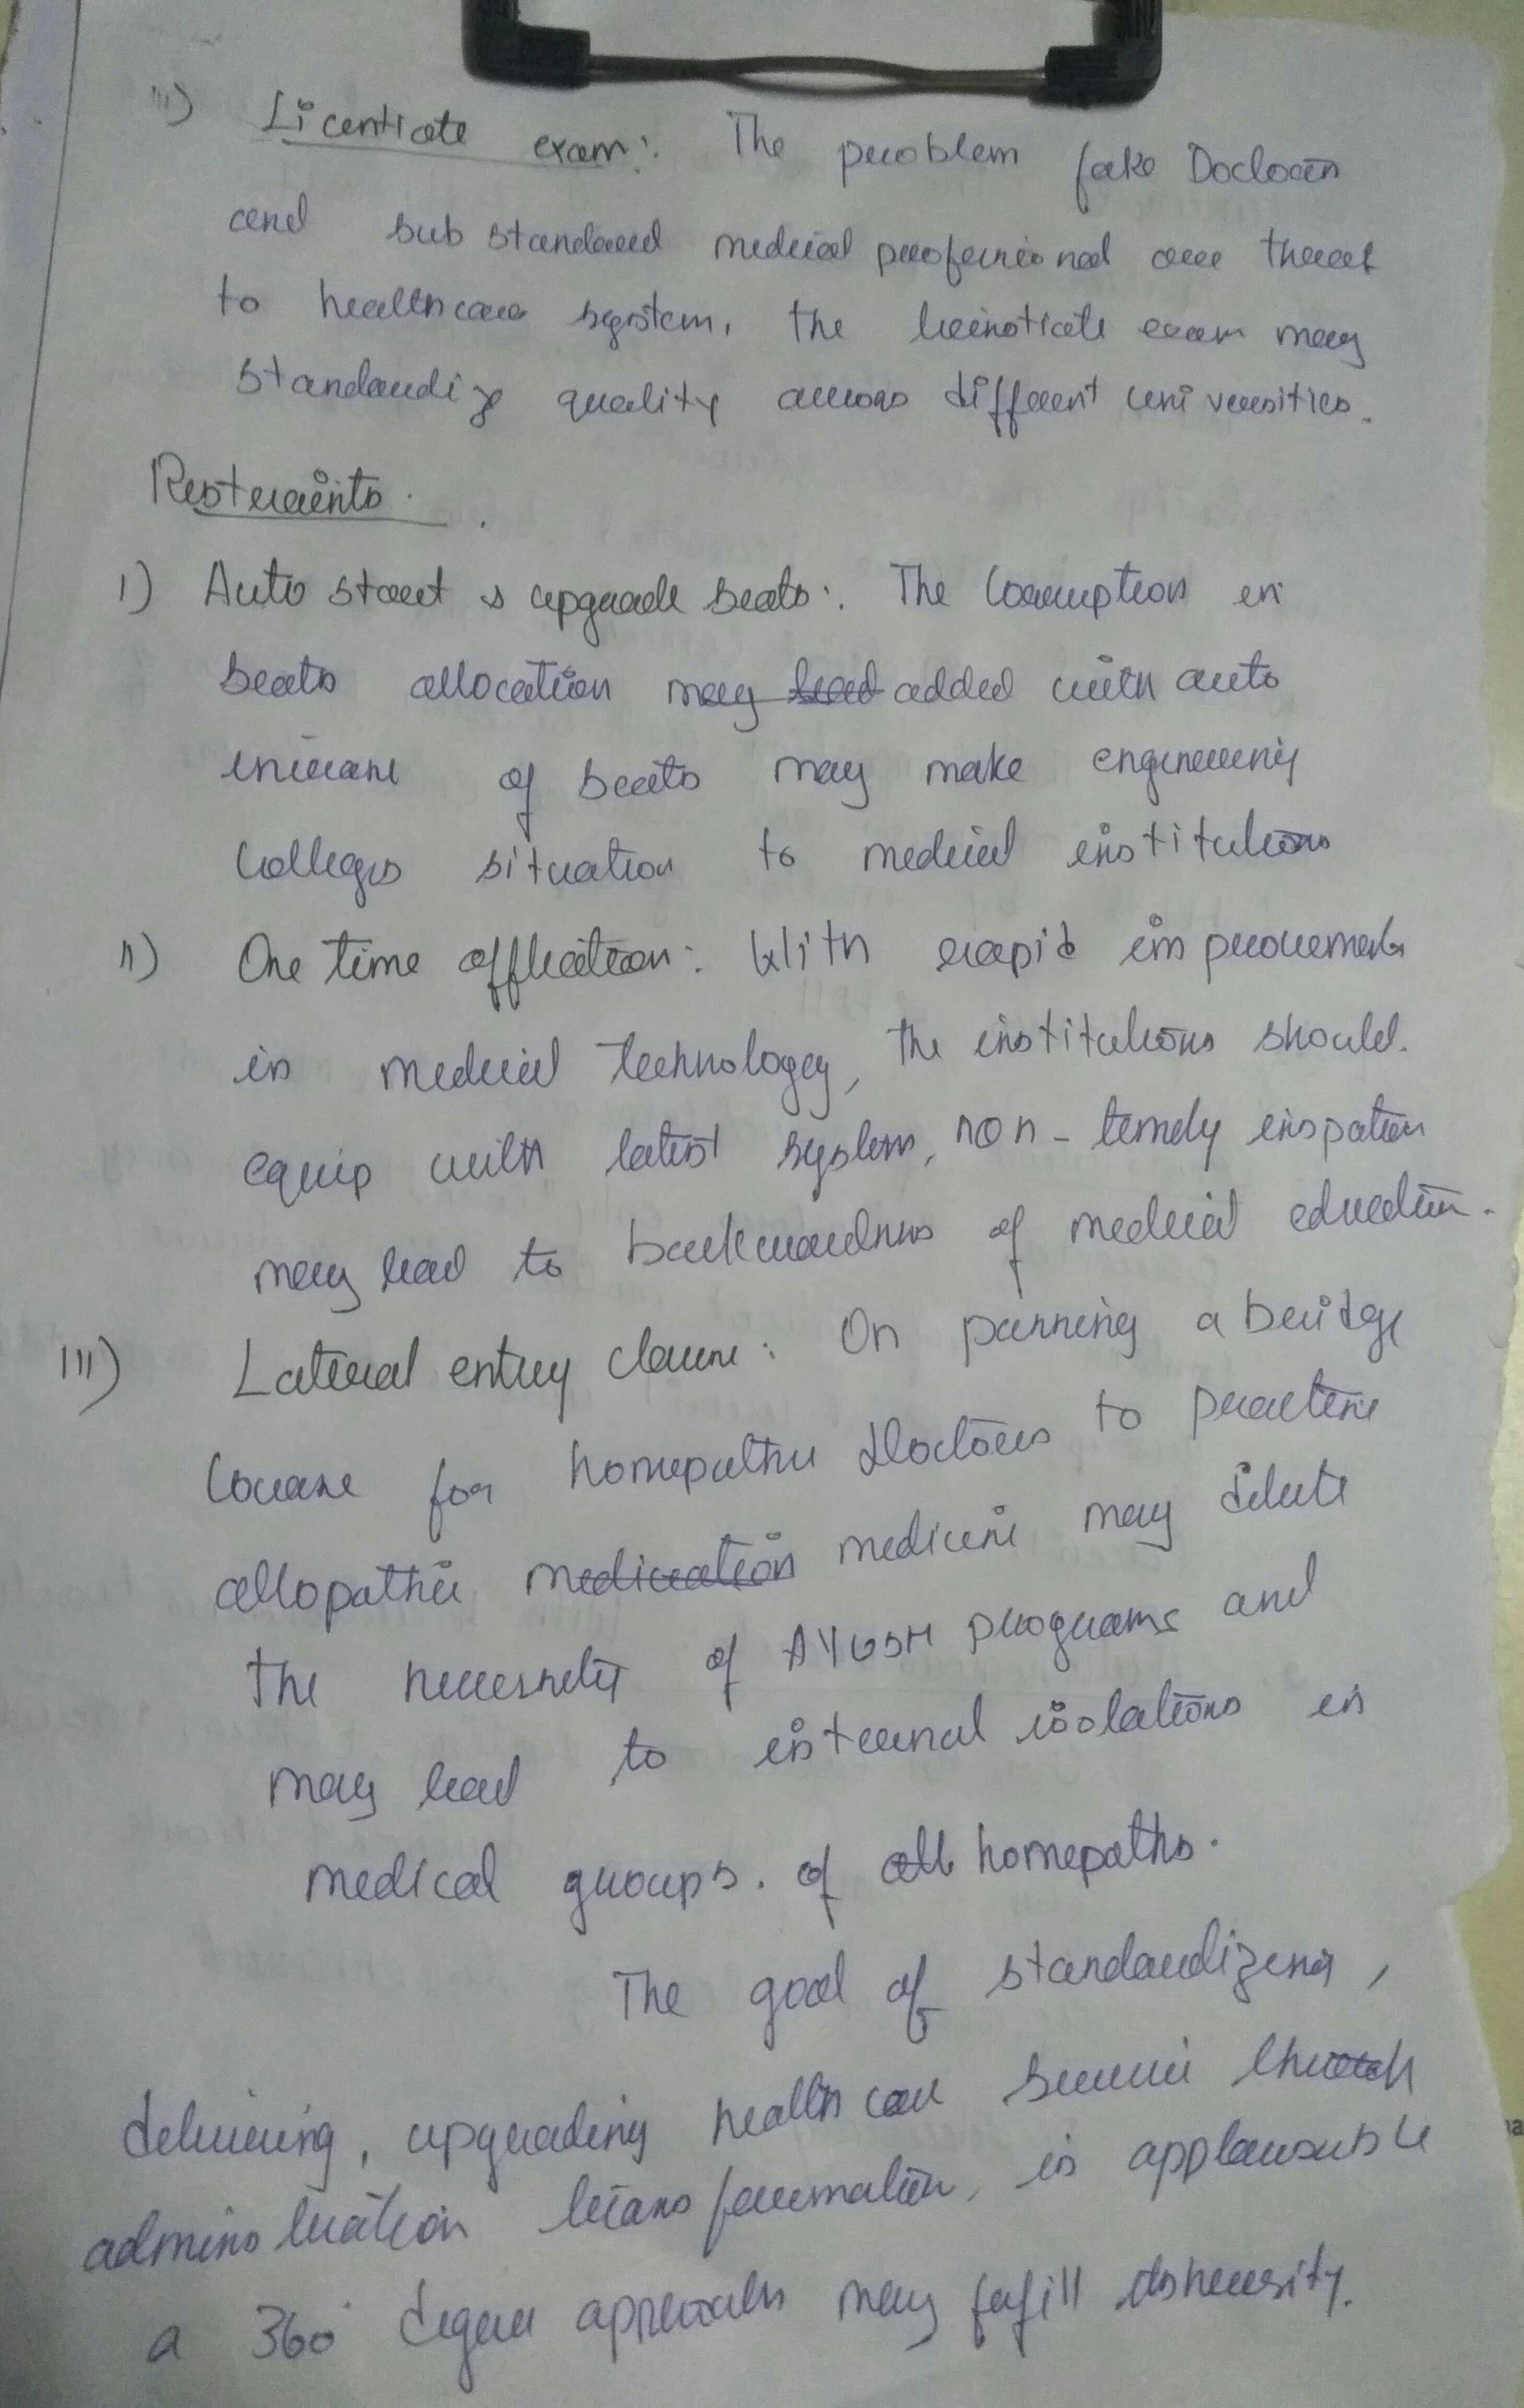 iii) Licentiate exam: The problem fake Doctors
and sub standard medical professional are threat
to healthcare system, the exam may
standardize quality across different universities.
Restraints.
i) Auto start & upgrade seats: The Corruption in
seats allocation may lead added with auto
increase of seats may make engineering
colleges situation to medical institutions
ii) One time affliation: With rapid improvements
in medical technology, the institutions should
equip with latest system, non-timely inspation
may lead to backwardness of medical education.
iii) Lateral entry clause: On passing a bridge
course for homepathic doctors to practice
allopathic medication medicine may dilute
the necessity of AYUSH programs and
may lead to internal isolations in
medical groups. of homepaths.
The goal of standardizing,
delivering, upgrading health care service
administration transformation, is applausable
a 360° degree approach may fufill its necessity.